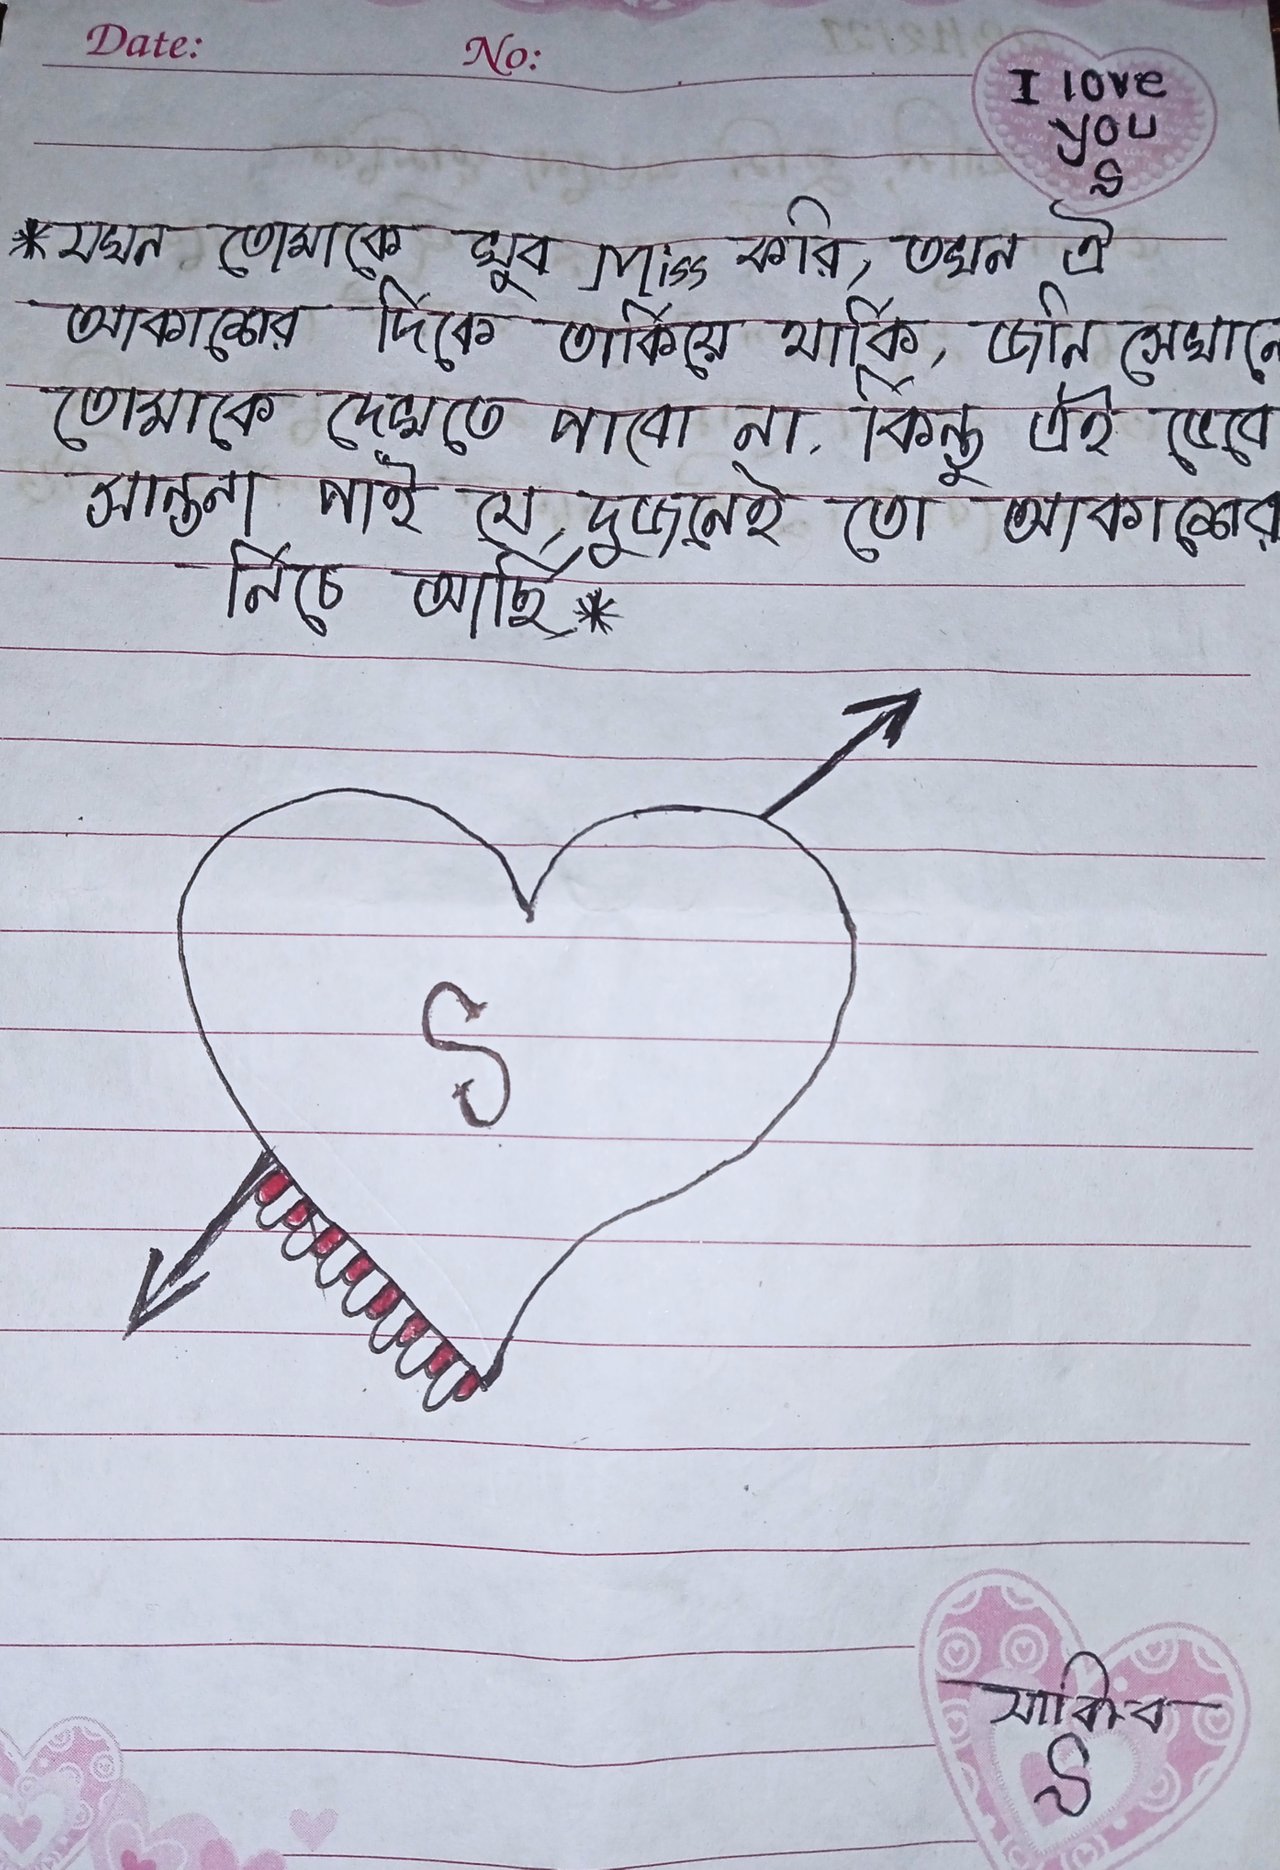 Date: No:
I love
you
S
*যখন তোমাকে খুব Miss করি, তখন ঐ
আকাশের দিকে তাকিয়ে থাকি, জানি সেখানে
তোমাকে দেখতে পাবো না, কিন্তু এই ভেবে
সান্তনা পাই যে, দুজনেই তো আকাশের
নিচে আছি*
S
সাকিব
S